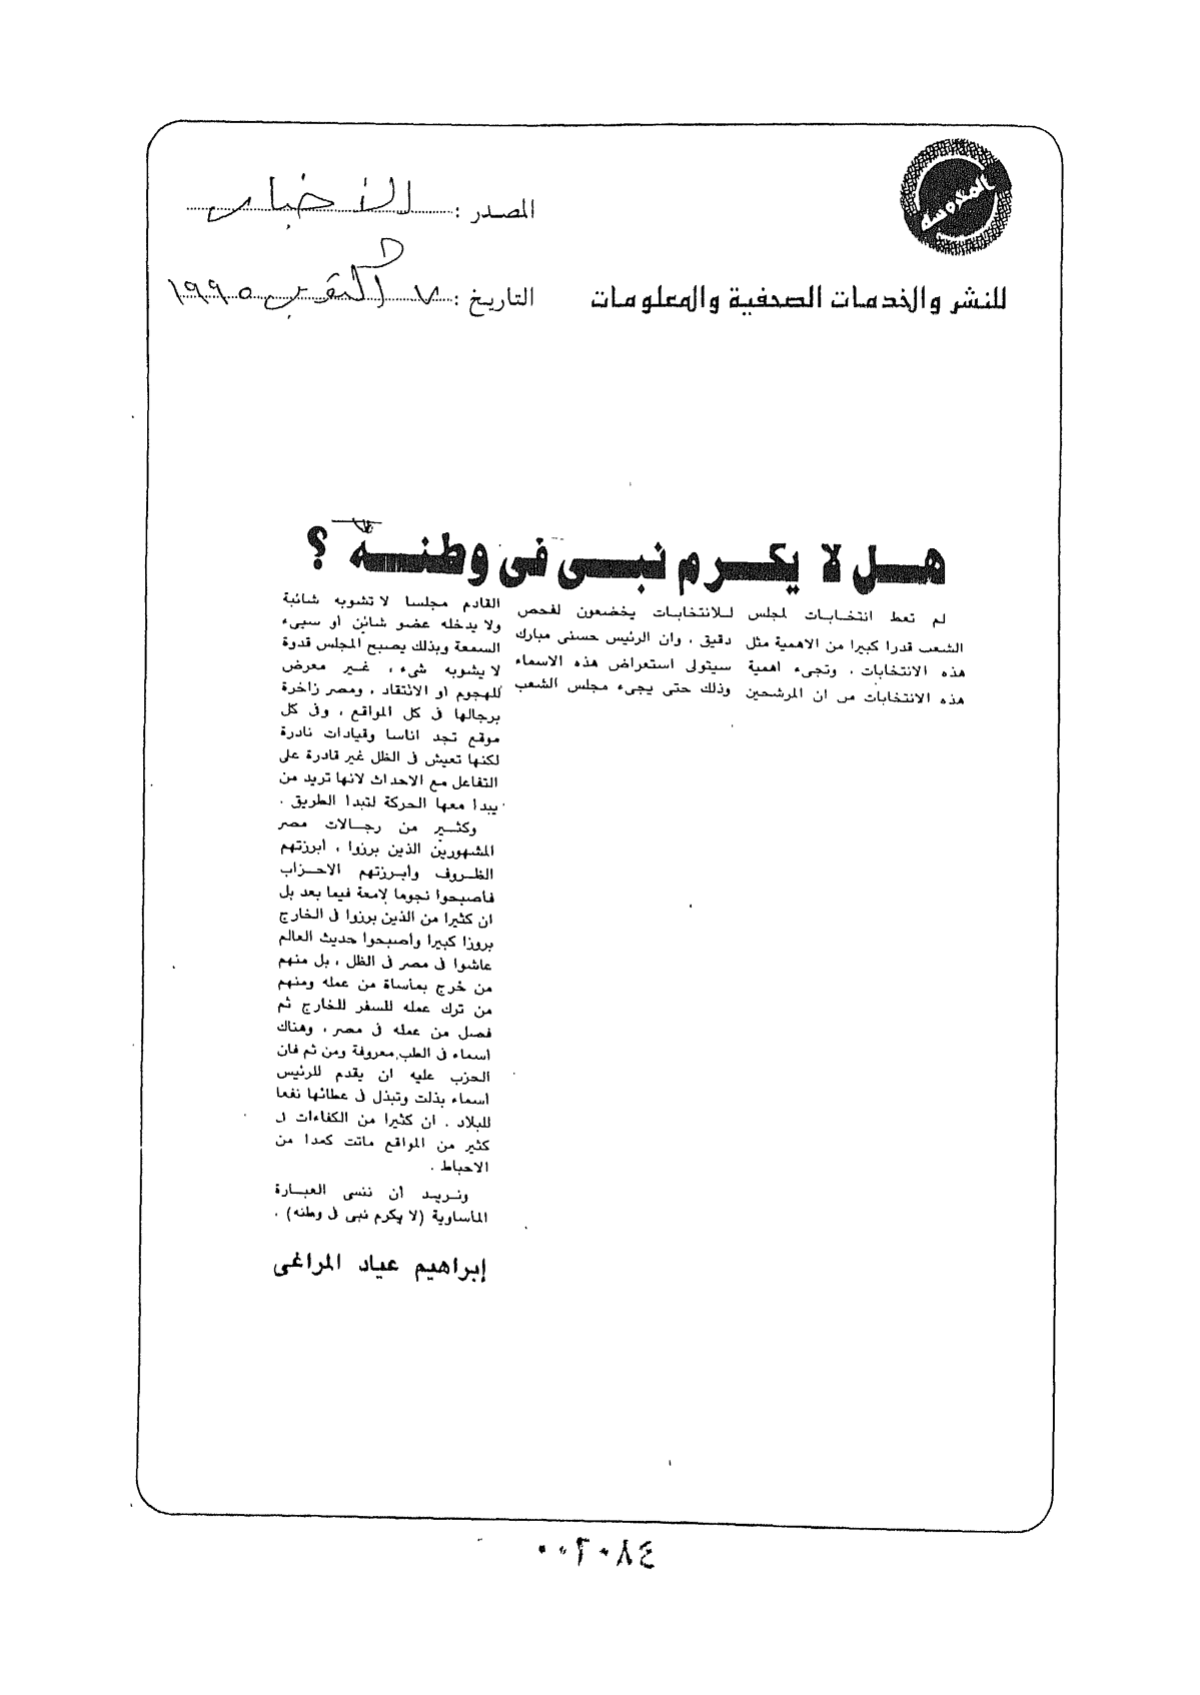 المصدر : الأخبار
للنشر والخدمات الصحفية والمعلومات
التاريخ : ٧ أكتوبر ١٩٩٥
هل لا يكرم نبى فى وطنه ؟
لم تعط انتخابات لمجلس
الشعب قدرا كبيرا من الاهمية مثل
هذه الانتخابات . وتجىء اهمية
هذه الانتخابات من ان المرشحين
للانتخابات يخضعون لفحص
دقيق ، وان الرئيس حسنى مبارك
سيتولى استعراض هذه الاسماء
وذلك حتى يجىء مجلس الشعب
القادم مجلسا لا تشوبه شائبة
ولا يدخله عضو شائن او سيىء
السمعة وبذلك يصبح المجلس قدوة
لا يشوبه شىء ، غير معرض
للهجوم او الانتقاد ، ومصر زاخرة
برجالها فى كل المواقع ، وفى كل
موقع تجد اناسا وقيادات نادرة
لكنها تعيش فى الظل غير قادرة على
التفاعل مع الاحداث لانها تريد من
يبدا معها الحركة لتبدا الطريق .
وكثير من رجالات مصر
المشهورين الذين برزوا ، ابرزتهم
الظروف وأبرزتهم الاحزاب
فأصبحوا نجوما لامعة فيما بعد بل
ان كثيرا من الذين برزوا فى الخارج
بروزا كبيرا وأصبحوا حديث العالم
عاشوا فى مصر فى الظل ، بل منهم
من خرج بمأساة من عمله ومنهم
من ترك عمله للسفر للخارج ثم
فصل من عمله فى مصر ، وهناك
اسماء فى الطب معروفة ومن ثم فان
الحزب عليه ان يقدم للرئيس
اسماء بذلت وتبذل فى عطائها نفعا
للبلاد . ان كثيرا من الكفاءات فى
كثير من المواقع ماتت كمدا من
الاحباط .
ونريد أن ننسى العبارة
المأساوية (لا يكرم نبى فى وطنه) .
إبراهيم عياد المراغى
٠٠٢٠٨٤